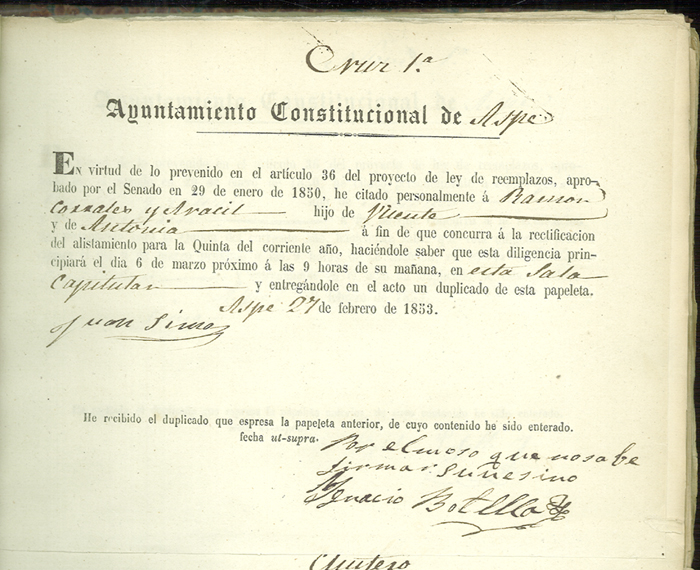 Cruz 1.ª
Ayuntamiento Constitucional de Aspe
En virtud de lo prevenido en el artículo 36 del proyecto de ley de reemplazos, apro-
bado por el Senado en 29 de enero de 1850, he citado personalmente á Ramon
Corrales y Aracil hijo de Vicente
y de Antonia á fin de que concurra á la rectificacion
del alistamiento para la Quinta del corriente año, haciéndole saber que esta diligencia prin-
cipiará el dia 6 de marzo próximo á las 9 horas de su mañana, en esta Sala
Capitular y entregándole en el acto un duplicado de esta papeleta.
Aspe 27 de febrero de 1853.
Juan
He recibido el duplicado que espresa la papeleta anterior, de cuyo contenido he sido enterado.
fecha ut-supra.
Por el moso que no sabe
firmar su vesino
Ygnacio Botella
Quitero